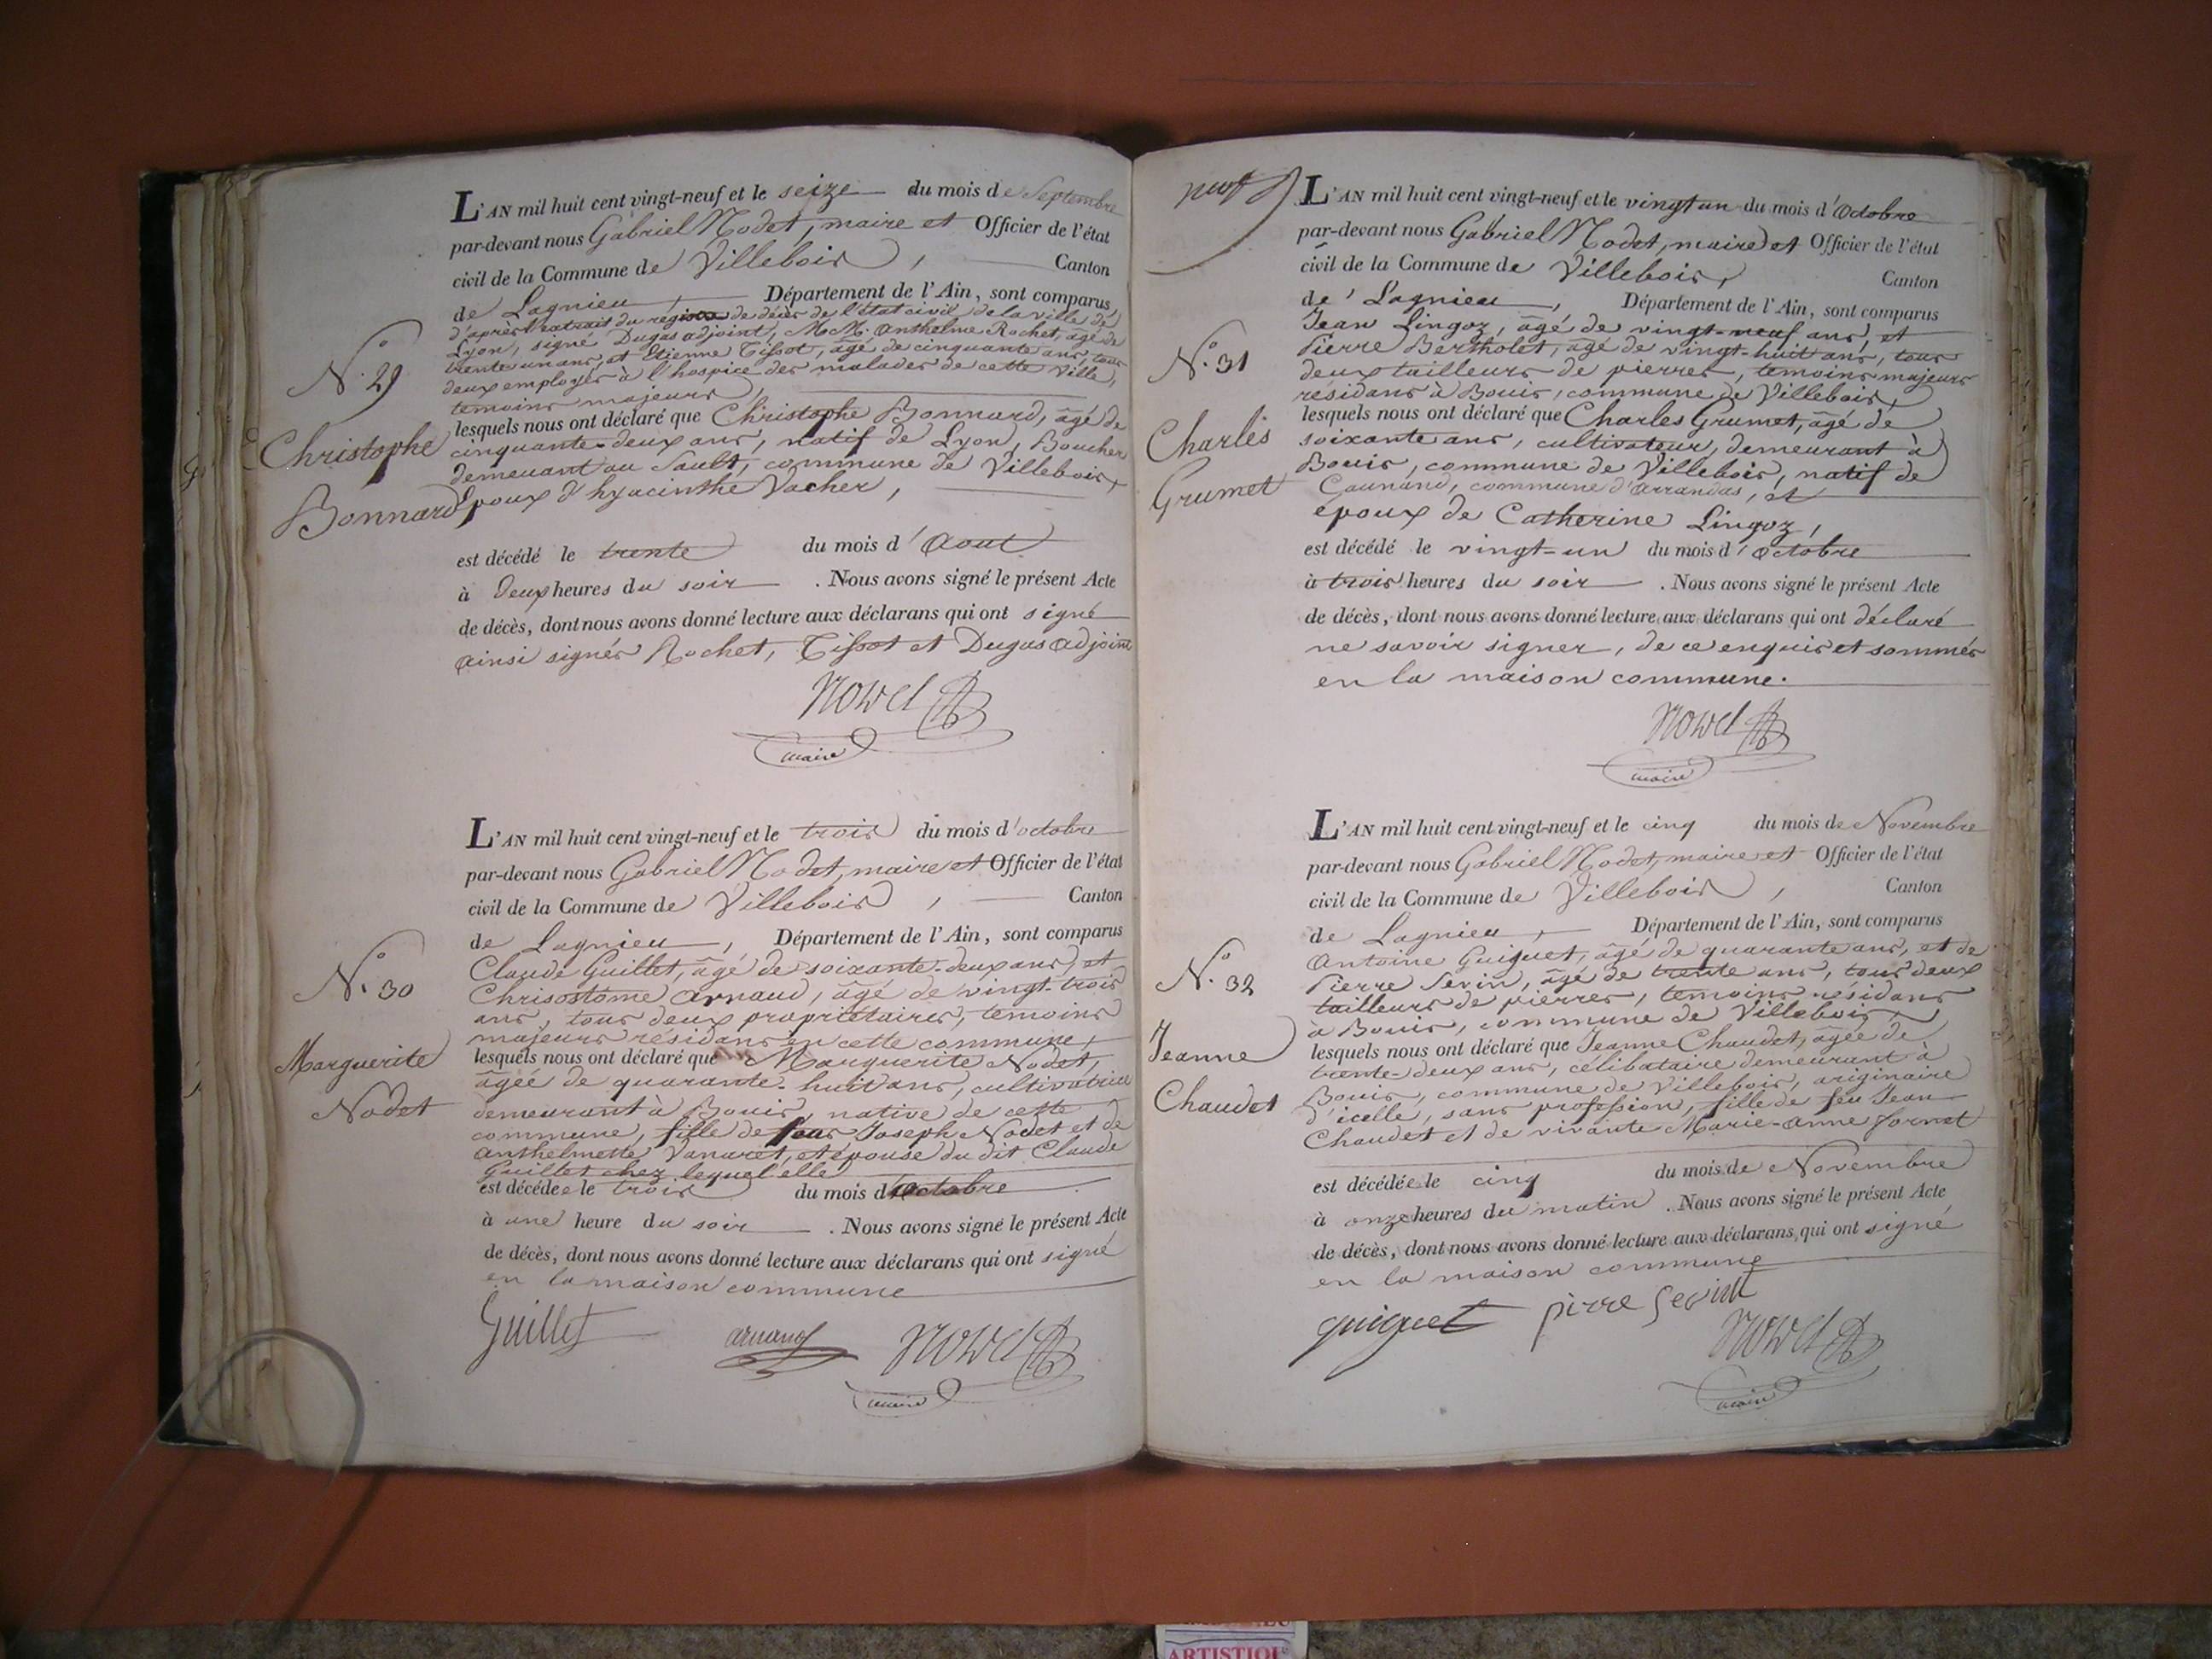 L'AN mil huit cent vingt-neuf et le seize du mois de Septembre
par-devant nous Gabriel Nodet, maire et Officier de l'état
civil de la Commune de Villebois, Canton
de Lagnieu, Département de l'Ain, sont comparus,
d'après l'extrait du registre de décès de l'état civil de la ville de
Lyon, signé Dugas adjoint, M.M. Anthelme Rochet, âgé de
trente un ans, et Etienne Tissot, âgé de cinquante ans, tous
deux employés à l'hospice des malades de cette ville,
temoins majeurs
lesquels nous ont déclaré que Christophe Bonnard, âgé de
cinquante-deux ans, natif de Lyon, Boucher
demeurant au Sault, commune de Villebois,
Epoux d'hyacinthe Vacher,
est décédé le trente du mois d'Aout
à Deux heures du soir. Nous avons signé le présent Acte
de décès, dont nous avons donné lecture aux déclarans qui ont signé
ainsi signés Rochet, Tissot et Dugas adjoint
Nodet
maire
N.º 29
Christophe
Bonnard
L'AN mil huit cent vingt-neuf et le trois du mois d'octobre
par-devant nous Gabriel Nodet, maire et Officier de l'état
civil de la Commune de Villebois, Canton
de Lagnieu, Département de l'Ain, sont comparus
Claude Guillet, âgé de soixante-deux ans, et
Chrisostôme Arnaud, âgé de vingt-trois
ans, tous deux propriétaires, temoins
majeurs résidans en cette commune,
lesquels nous ont déclaré que Marguerite Nodet,
âgée de quarante-huit ans, cultivatrice
demeurant à Bouis, native de cette
commune, fille de feus Joseph Nodet et de
Anthelmette Vanaret, et épouse du dit Claude
Guillet chez lequel elle
est décédée le trois du mois d'Octobre
à une heure du soir. Nous avons signé le présent Acte
de décès, dont nous avons donné lecture aux déclarans qui ont signé
en la maison commune
Guillet arnaud Nodet
maire
N.º 30
Marguerite
Nodet
neuf
L'AN mil huit cent vingt-neuf et le vingt un du mois d'Octobre
par-devant nous Gabriel Nodet, maire et Officier de l'état
civil de la Commune de Villebois, Canton
de Lagnieu, Département de l'Ain, sont comparus
Jean Lingoz, âgé de vingt-neuf ans, et
Pierre Bertholet, âgé de vingt-huit ans, tous
deux tailleurs de pierres, temoins majeurs
résidans à Bouis, commune de Villebois,
lesquels nous ont déclaré que Charles Grumet, âgé de
soixante ans, cultivateur, demeurant à
Bouis, commune de Villebois, natif de
Caunand, commune d'Arrandas, et
époux de Catherine Lingoz,
est décédé le vingt-un du mois d'Octobre
à trois heures du soir. Nous avons signé le présent Acte
de décès, dont nous avons donné lecture aux déclarans qui ont déclaré
ne savoir signer, de ce enquis et sommés
en la maison commune.
Nodet
maire
N.º 31
Charles
Grumet
L'AN mil huit cent vingt-neuf et le cinq du mois de Novembre
par-devant nous Gabriel Nodet, maire et Officier de l'état
civil de la Commune de Villebois, Canton
de Lagnieu, Département de l'Ain, sont comparus
Antoine Guiguet, âgé de quarante ans, et de
Pierre Sevin, âgé de trente ans, tous deux
tailleurs de pierres, temoins résidans
à Bouis, commune de Villebois,
lesquels nous ont déclaré que Jeanne Chaudet, âgée de
trente-deux ans, célibataire demeurant à
Bouis, commune de Villebois, originaire
d'icelle, sans profession, fille de feu Jean
Chaudet et de vivante Marie-Anne Jornet
est décédée le cinq du mois de Novembre
à onze heures du matin. Nous avons signé le présent Acte
de décès, dont nous avons donné lecture aux déclarans, qui ont signé
en la maison commune
guiguet pierre Sevin
Nodet
maire
N.º 32
Jeanne
Chaudet
ARTISTIQUE